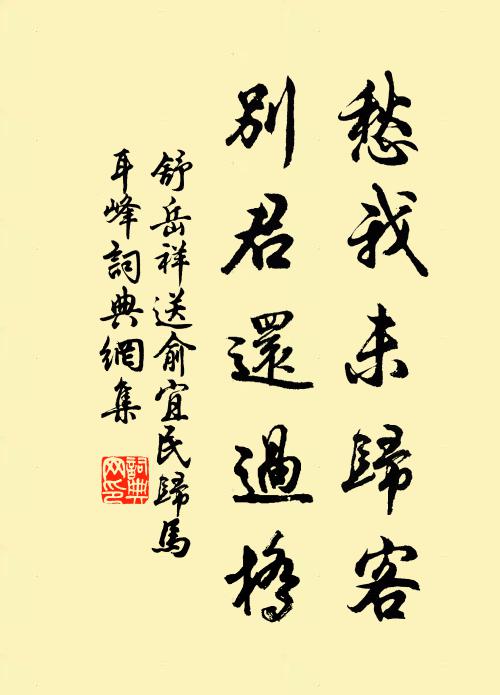 愁我未歸客
別君還過橋
舒岳祥送俞宜民歸馬
耳峰詞典網集
詞典網印